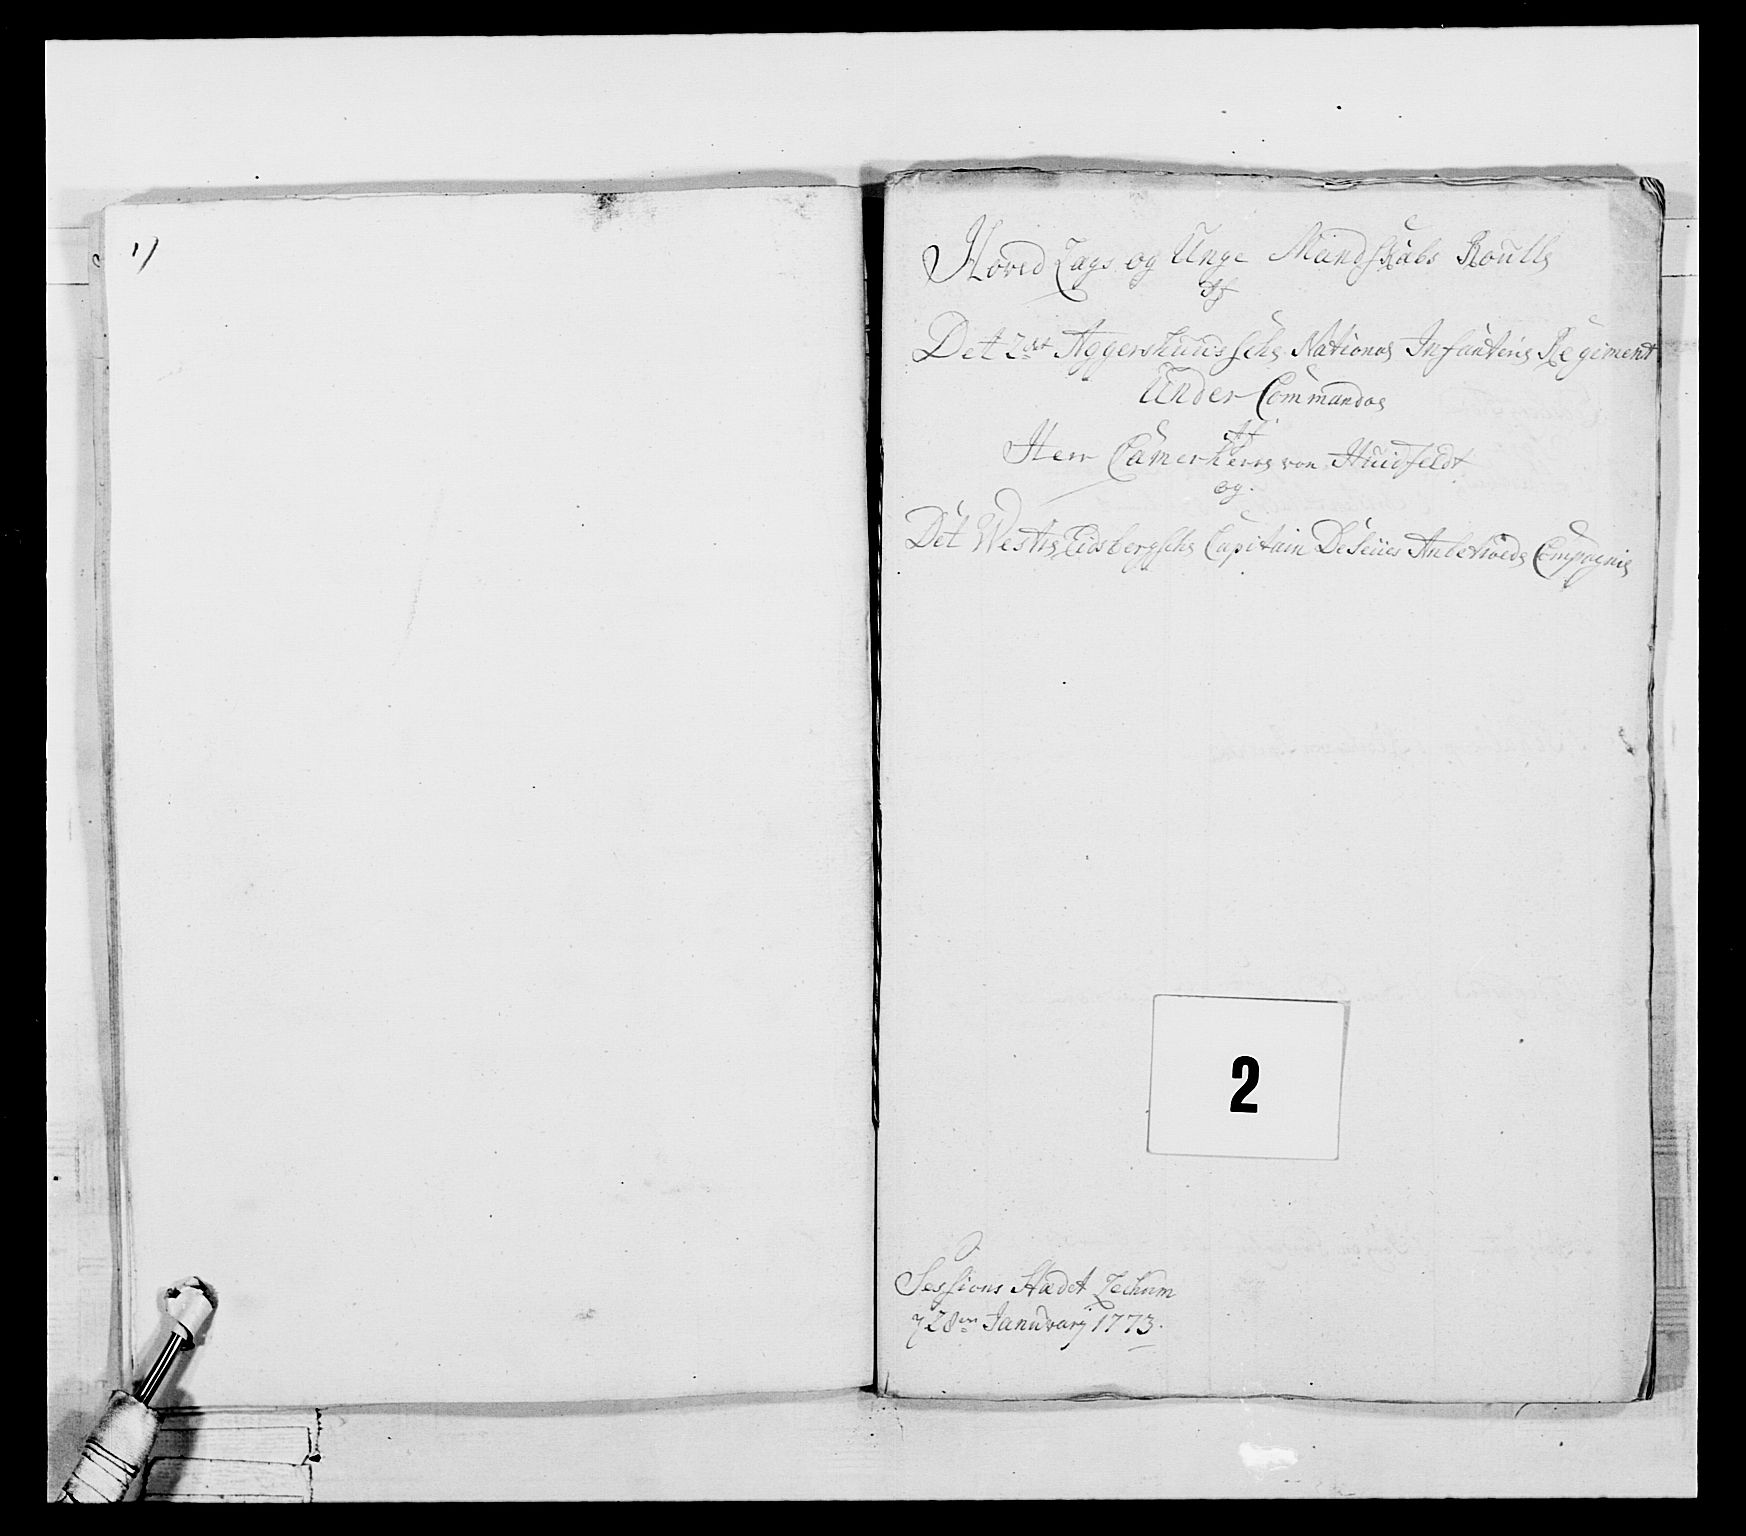 1)
Hoved Lags og Unge Mandskabs Roulle
Af
Det 2det Aggershuusische National Infanterie Regiment
Under Commando
Af
Herr Camerherre von Huidfeldt
og
Det Westre Eidsbergsche Capitain DeSeües Anbetroede Compagnie
2
Sessions Stædet Lechum
28en Janŭvarij 1773.